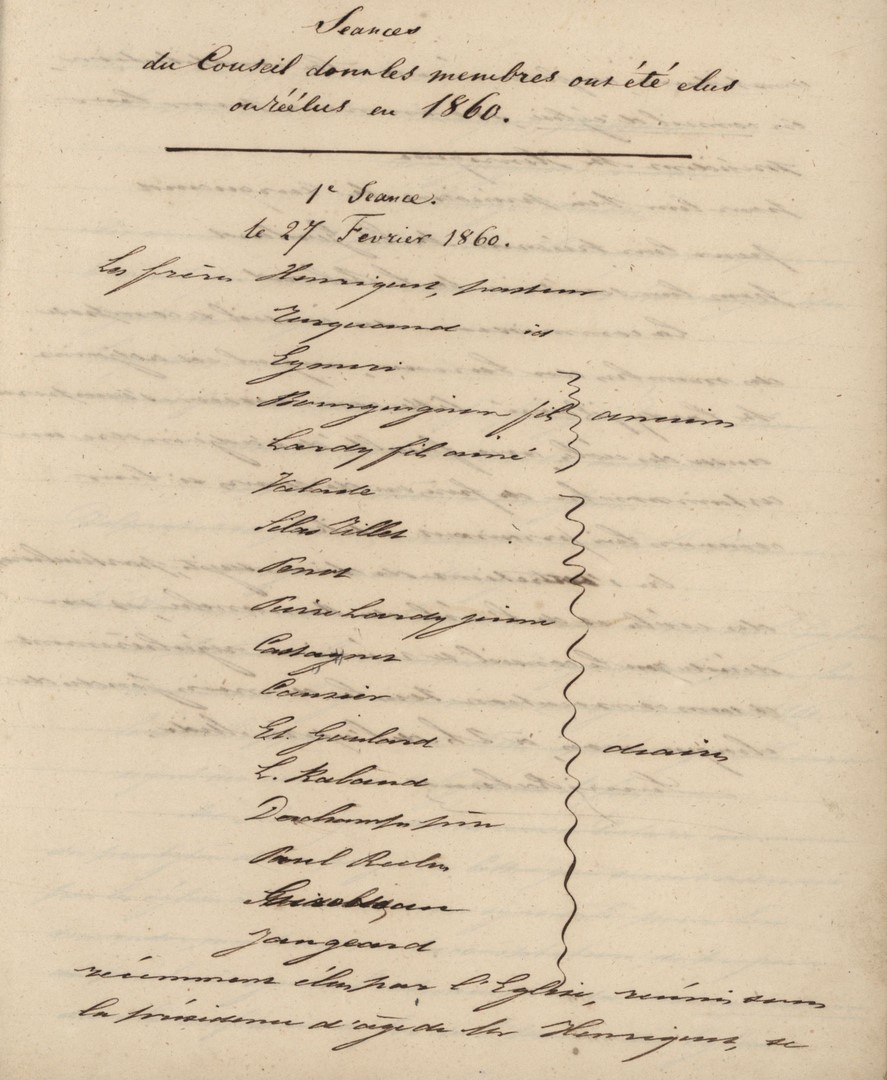 Seances
du Conseil dont les membres ont été elus
ou réélus en 1860.
1e Seance.
le 27 Fevrier 1860.
Les frères Henriquet, pasteur
Turquand id
Eymeri
Bourguignon fils anciens
Lardy fils ainé
Valade
Silas Tillet
Perrot
Pierre Lardy jeune
Castagnet
Cousier
Et. Goulard
L. Rabaud
Deschamps père
Paul Reclus
Jangeard
diacres
récemment élus par l'Eglise, réunis sous
la présidence d'âge de Mr Henriquet, se